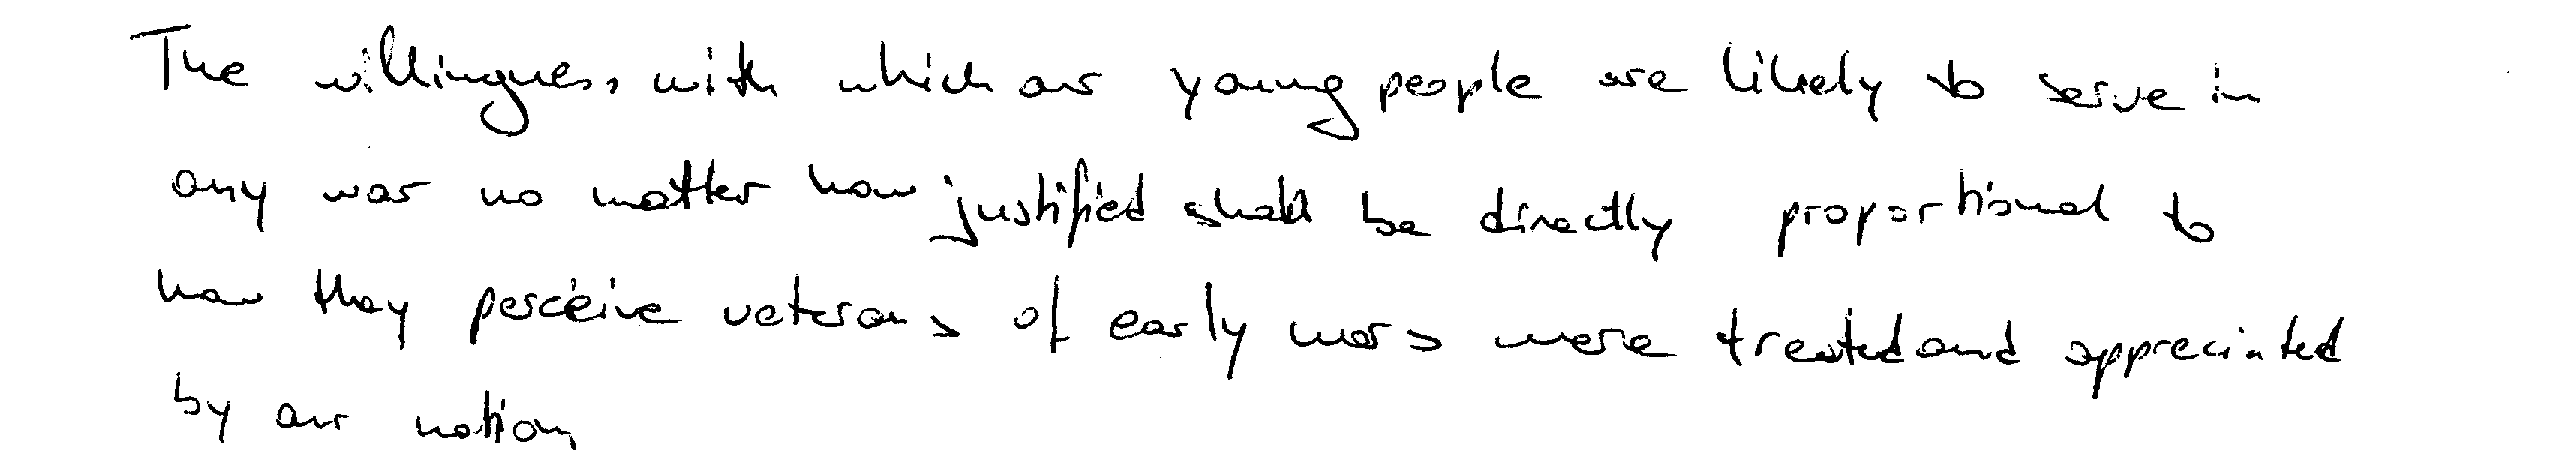 The willingness with which our young people are likely to serve in
any war no matter how justified shall be directly proportional to
how they perceive veterans of early wars were treated and appreciated
by our nation